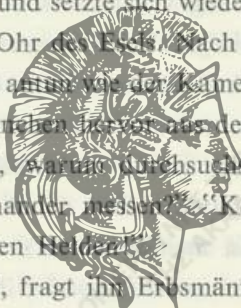 und setzte sich wieder
Ohr des Esels. Nach
antun wie der Kame
nchen hervor aus de
, warum durchsuch
nander messen?" "K
en Helden!
, fragt ihn Erbsmän